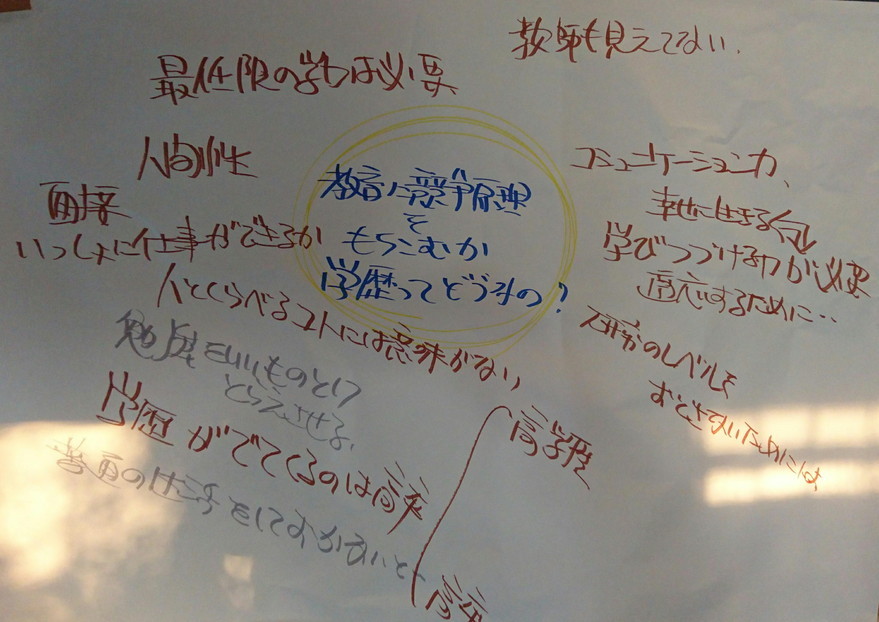 教師も見えてない.
最低限の学力は必要
人間性
面接
いっしょに仕事ができるか
教育に競争原理
を
もちこむか
学歴ってどうなの?
コミュニケーション力、
幸せに生きる
学びつづける力が必要
適応するために…
人とくらべるコトには意味がない
のレベルを
おとさないためには、
勉強をいいものとして
とらえさせる、
学歴がでてくるのは高卒
普通の生活をしておかないと
高学歴
高卒